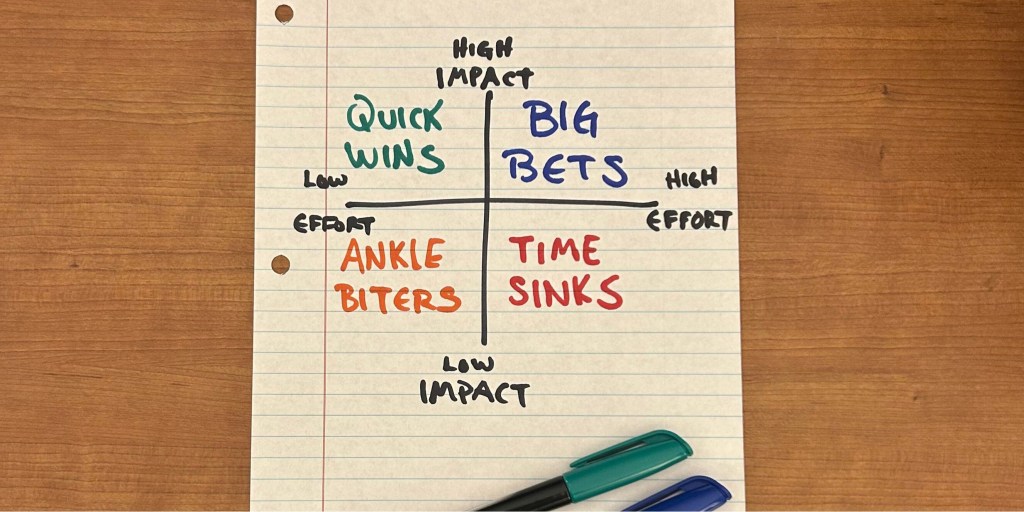 HIGH
IMPACT
QUICK
WINS
BIG
BETS
LOW
EFFORT
HIGH
EFFORT
ANKLE
BITERS
TIME
SINKS
LOW
IMPACT